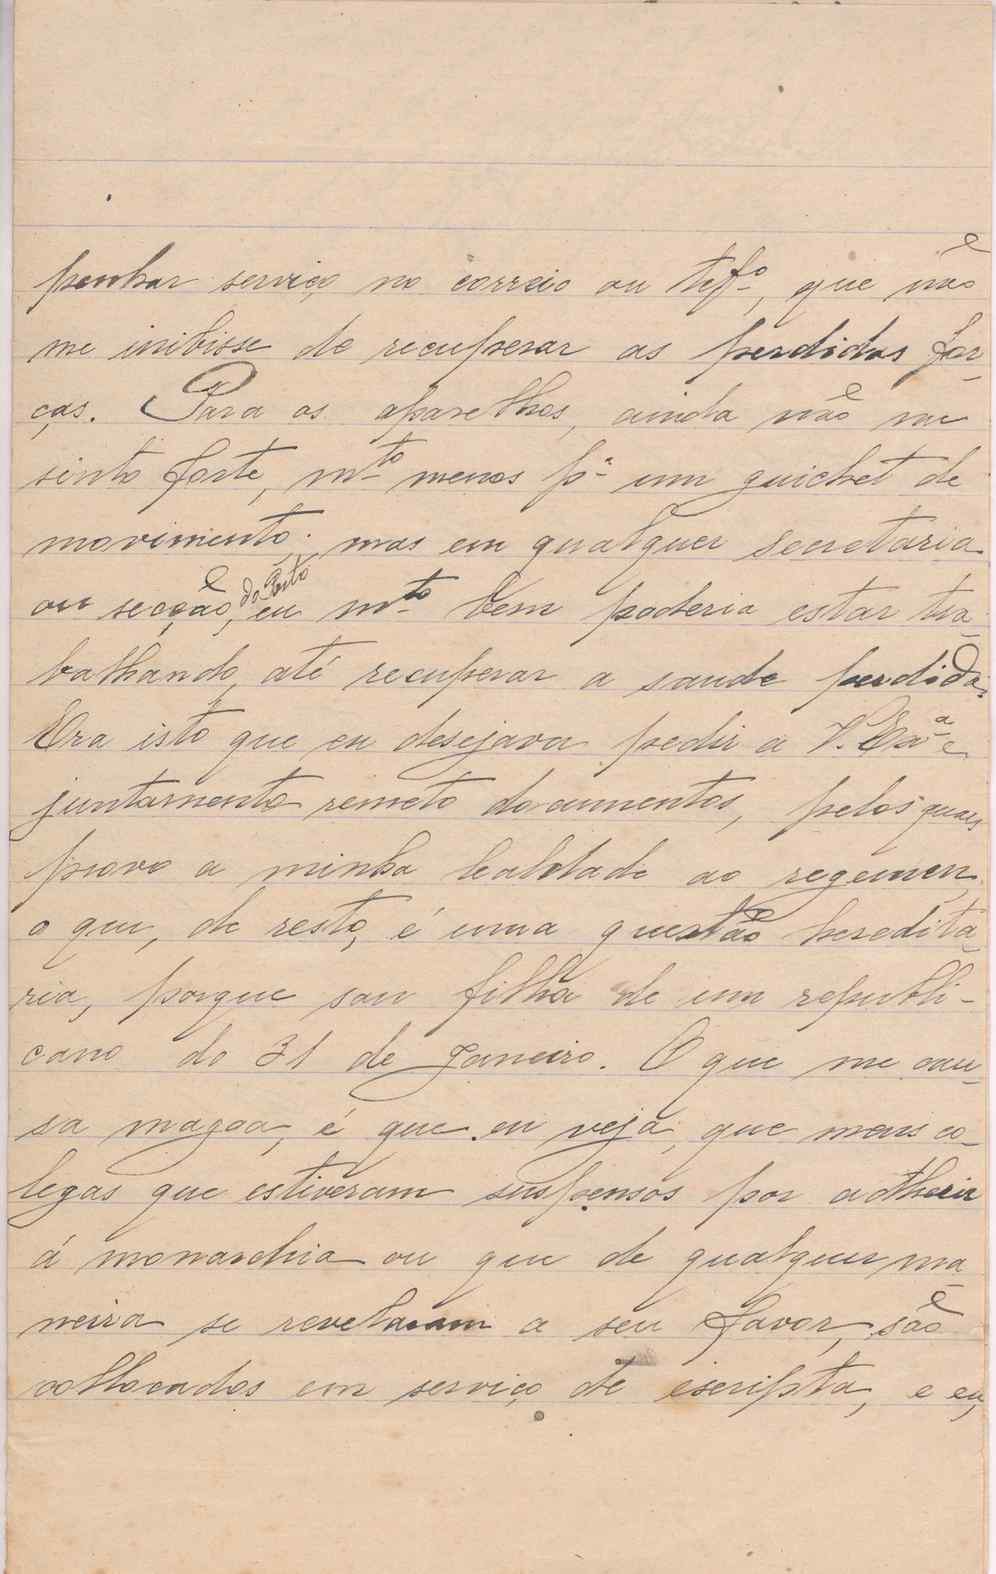 penhar serviço no correio ou telfº, que não
me inibisse de recuperar as perdidas for-
ças. Para os aparelhos, ainda não me
sinto forte, mto menos pª um guichet de
movimento; mas em qualquer secretaria
ou secção, do Porto eu mto bem poderia estar tra-
balhando, até recuperar a saude perdida.
Era isto que eu desejava pedir a V. Exª e
juntamente remeto documentos, pelos quaes
provo a minha lealdade ao regimen,
o que, de resto, é uma questão heredita-
ria, porque sou filha de um republi-
cano do 31 de Janeiro. O que me cau-
sa magoa, é que eu veja, que meus co-
legas que estiveram suspensos por adherir
á monarchia ou que de qualquer ma-
neira se revelaram a seu favor, são
collocados em serviço de escripta, e eu,